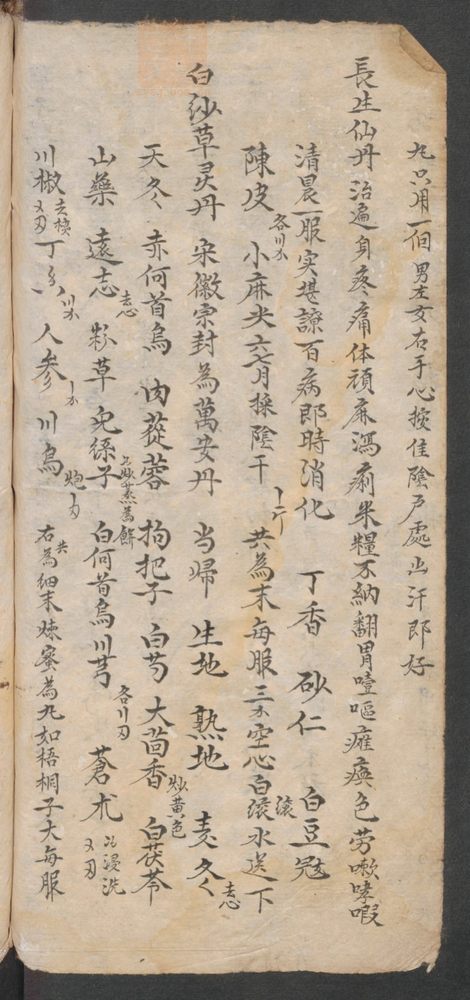 丸只用一個男左女右手心按住陰戶處出汗即好
長生仙丹 治遍身疼痛体頑麻瀉痢米糧不納翻胃噎嘔癱瘓色劳嗽哮
清晨一服实堪諒百病即時消化 丁香 砂仁 白豆蔻
陳皮 小麻 六七月採陰干 共為末每服三 空心白滚水送下
白 草灵丹 宋徽宗封為萬安丹 当帰 生地 熟地 麦冬去心
天冬 赤何首烏 肉蓯蓉 枸杞子 白芍 大茴香炒黄色 白茯苓
山藥 遠志去心 粉草 兔絲子 為餅 白何首烏 川芎 蒼朮
川椒去核 丁香 人参 川烏炮 右共為細末煉蜜為丸如梧桐子大每服